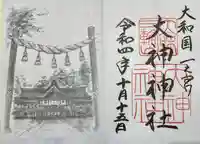 大和国 一之宮
大神神社
令和四年十月十五日